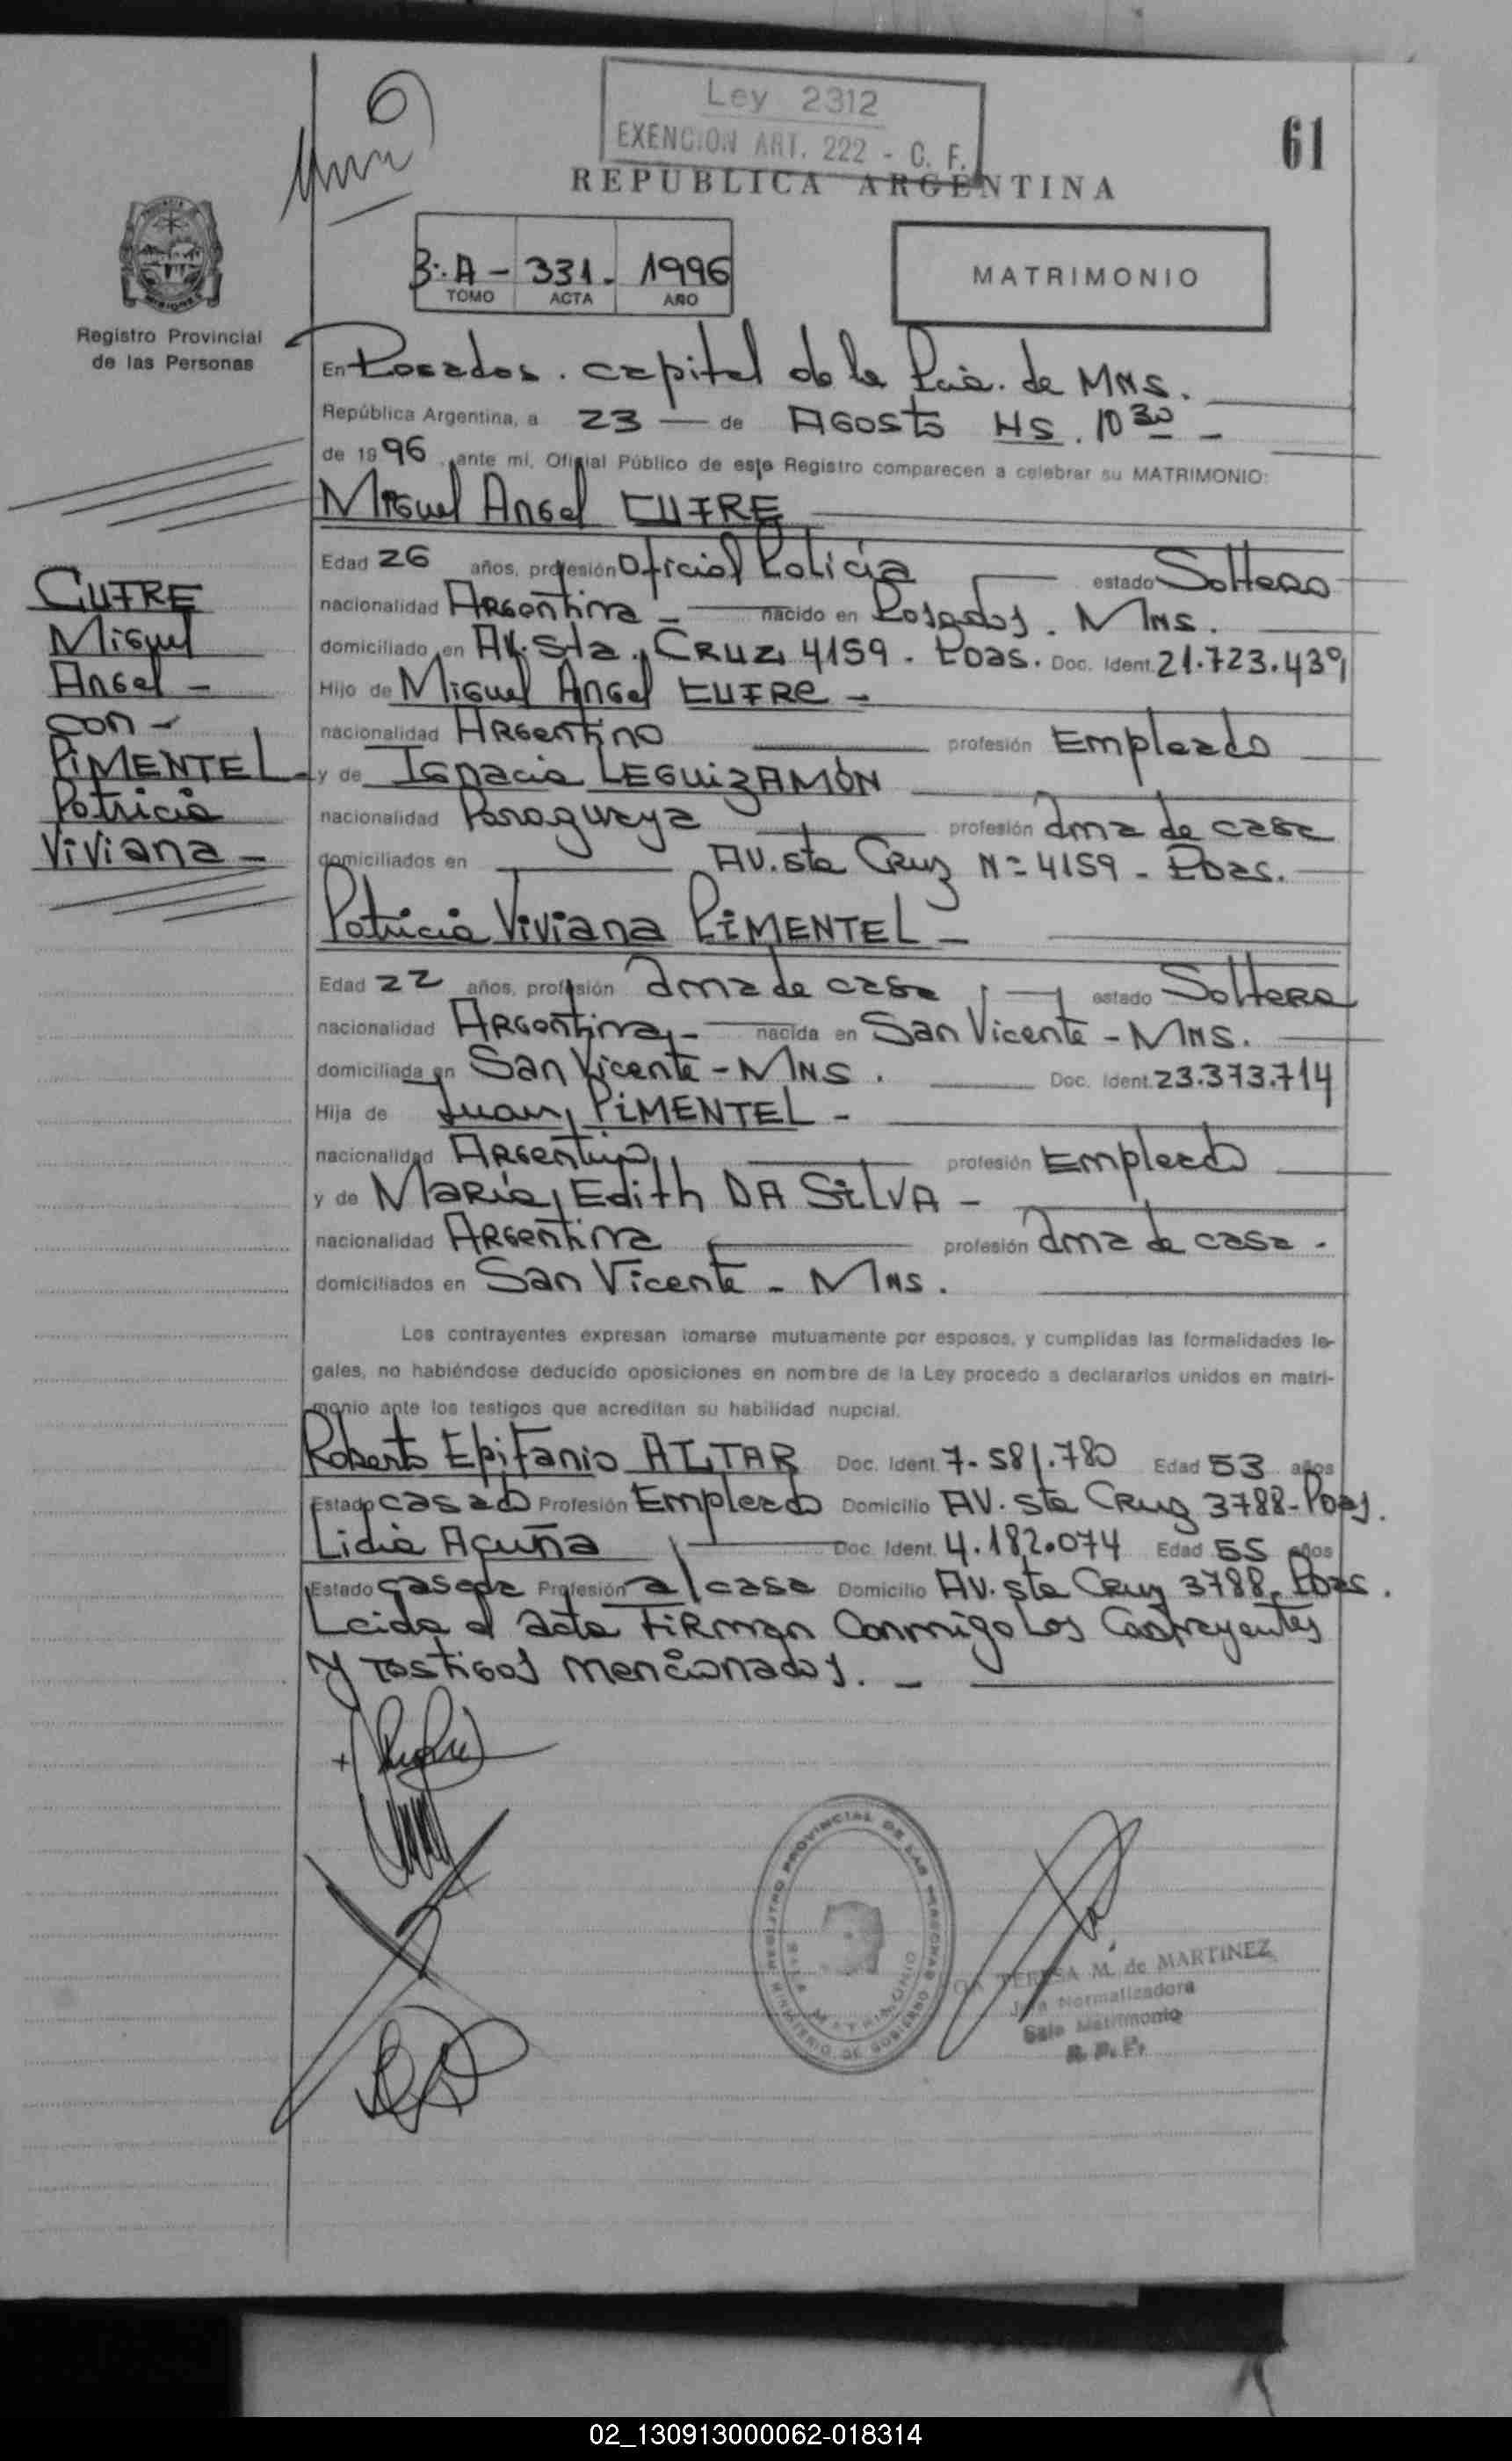 Ley 2312
EXENCION ART. 222 - C. F.
61
REPUBLICA ARGENTINA
3º. A - 331. 1996
TOMO ACTA AÑO
MATRIMONIO
Registro Provincial
de las Personas
En Posadas. capital de la Pcia. de MNS.
República Argentina, a 23 — de AGosto HS. 10 30 -
de 1996, ante mi, Oficial Público de este Registro comparecen a celebrar su MATRIMONIO:
Miguel Angel CUFRE
Edad 26 años, profesión Oficial Policía estado Soltero
nacionalidad Argentina - nacido en Posadas. MNS.
domiciliado en AV. Sta. CRUZ 4159. Poas. Doc. Ident. 21.723.439
Hijo de Miguel Angel CUFRE -
nacionalidad Argentino profesión Empleado
y de Ignacia LEGUIZAMÓN
nacionalidad Paraguaya profesión ama de casa
domiciliados en AV. sta Cruz Nº 4159 - Poas.
CUFRE
Miguel
Angel -
con -
PIMENTEL
Patricia
Viviana -
Patricia Viviana PIMENTEL -
Edad 22 años, profesión ama de casa estado Soltera
nacionalidad Argentina - nacida en San Vicente - MNS.
domiciliada en San Vicente - MNS. Doc. Ident. 23.373.714
Hija de Juan PIMENTEL -
nacionalidad Argentino profesión Empleado
y de María Edith DA SILVA -
nacionalidad Argentina profesión ama de casa.
domiciliados en San Vicente - MNS.
Los contrayentes expresan tomarse mutuamente por esposos, y cumplidas las formalidades le-
gales, no habiéndose deducido oposiciones en nombre de la Ley procedo a declararlos unidos en matri-
monio ante los testigos que acreditan su habilidad nupcial.
Roberto Epifanio Doc. Ident. 7.581.780 Edad 53 años
Estado casado Profesión Empleado Domicilio AV. sta Cruz 3788-Poas.
Lidia Acuña Doc. Ident. 4.182.074 Edad 55 años
Estado casada Profesión a/casa Domicilio AV. sta Cruz 3788. Poas.
Leida el acta Firman Conmigo Los Contrayentes
y Testigos mencionados. -
REGISTRO PROVINCIAL DE LAS PERSONAS
MINISTERIO DE GOBIERNO
SALA MATRIMONIO
TERESA M. de MARTINEZ
Jefa Normalizadora
Sala Matrimonio
R. P. P.
02_130913000062-018314